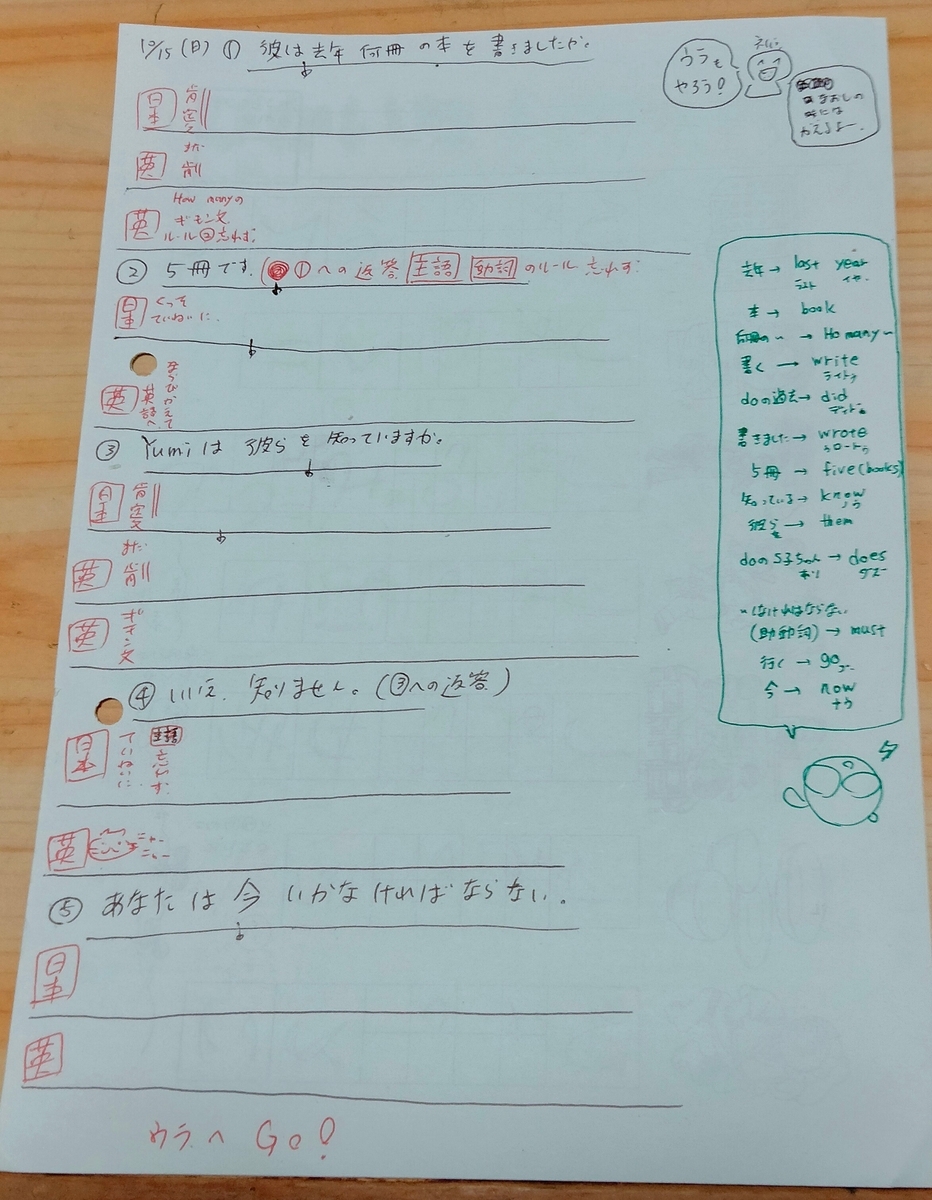 12/15(日) ① 彼は去年何冊の本を書きましたか。
ウラも
やろう!
なおしの
時には
かえるよー。
日本 肯定文
英 また 肯
英 How manyの
ギモン文
ルール②忘れず。
② 5冊です。 ①への返答 主語 動詞 のルール忘れず。
日本 くっそ
ていねいに。
英 ならびかえて
英語へ
③ Yumiは彼らを知っていますか。
日本 肯定文
英 また 肯
英 ギモン文
④ いいえ、知りません。(③への返答)
日本 ていねいに。 主語 忘れず。
英 ニャー
ニャー
⑤ あなたは今いかなければならない。
日本
英
ウラへ Go!
去年→ last year
ラスト イヤー
本→ book
何冊の〜 → Ho many〜
書く → write
ライトゥ
doの過去→ did
ディドゥ
書きました→ wrote
ゥロートゥ
5冊 → five(books)
知っている→ know
ノウ
彼らを → them
doのS子ちゃん→ does
ダズ
〜しなければならない
(助動詞)→ must
行く → go
ゴー
今→ now
ナウ